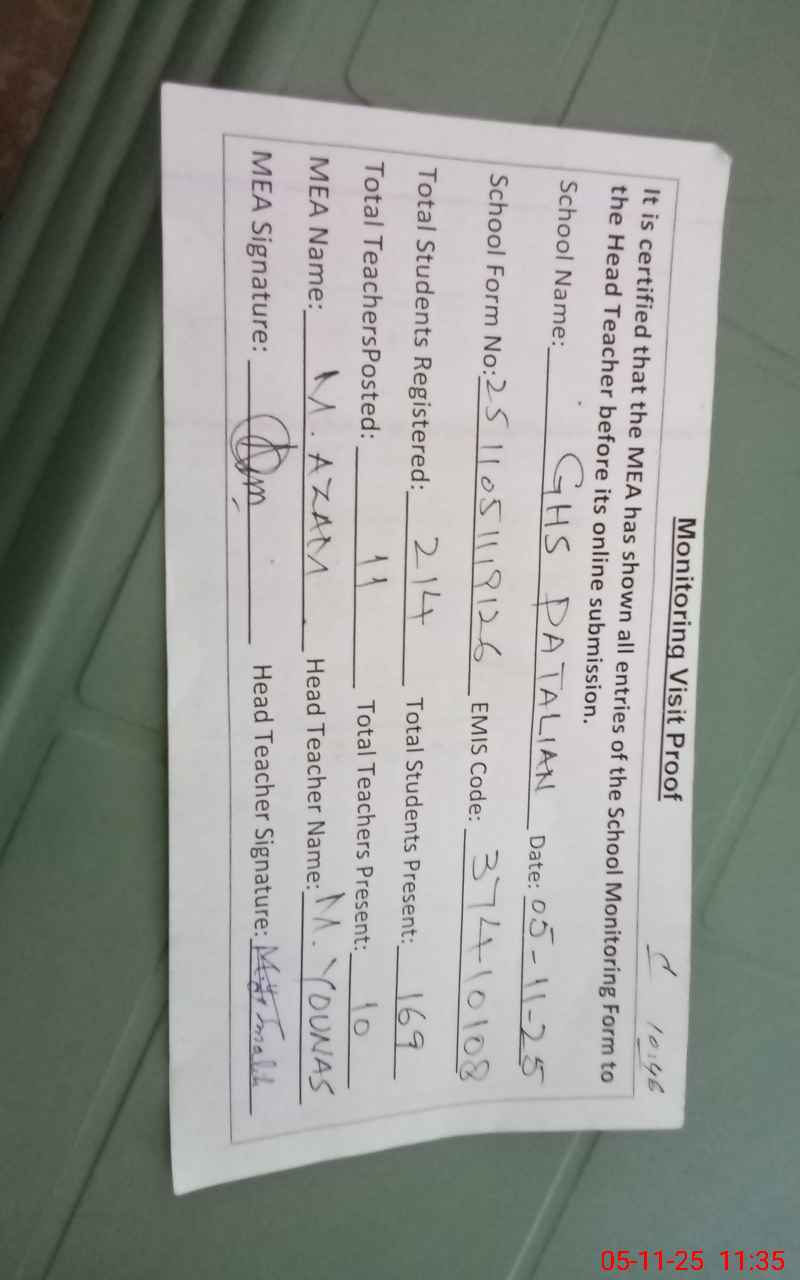 Monitoring Visit Proof
10:46
It is certified that the MEA has shown all entries of the School Monitoring Form to
the Head Teacher before its online submission.
School Name: GHS PATALIAN Date: 05-11-25
School Form No: 2511051119126 EMIS Code: 37410108
Total Students Registered: 214 Total Students Present: 169
Total TeachersPosted: 11 Total Teachers Present: 10
MEA Name: M. AZAM Head Teacher Name: M. YOUNAS
MEA Signature: Head Teacher Signature:
05-11-25 11:35